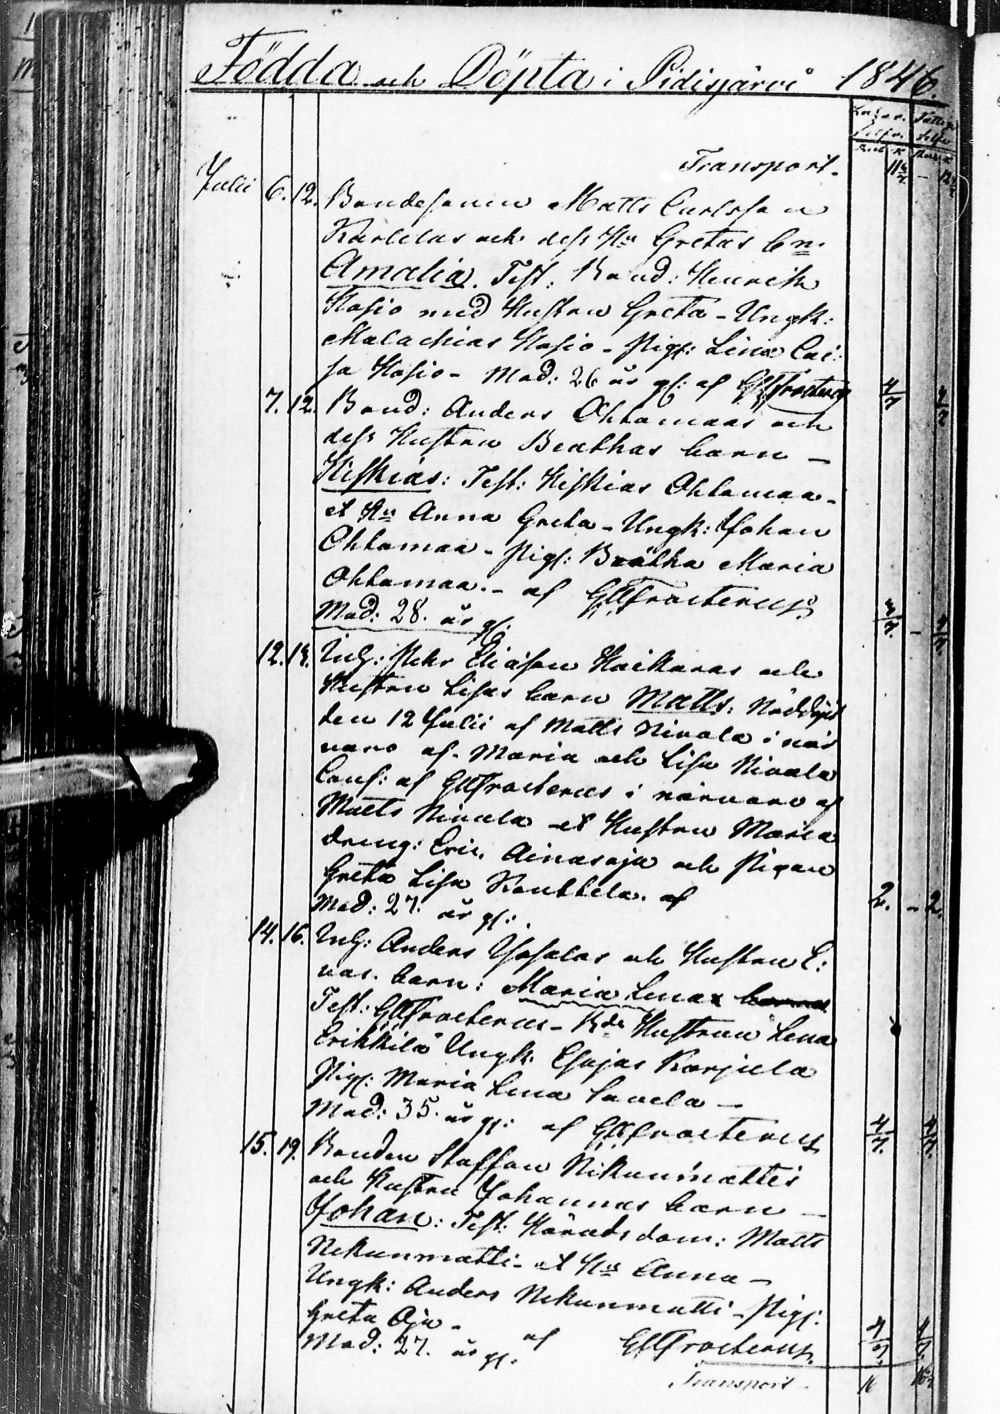 Födda och Döpta i Pidisjärvi 1846.
Transport.
Julii 6. 12. Bondesonen Matts Carlsson
Karlelas och dess Hu Gretas bn.
Amalia. Test: Bond: Henrik
Hosio med Hustru Greta - Ungk:
Malachias Hosio - Pig: Lisa Cai:
sa Hosio - Mod: 26 år gf: af Frosterus
7. 12. Bond: Anders Ohtamaas och
dess Hustru Beathas barn -
Hiskias: Test: Hiskias Ohtamaa -
et Hu Anna Greta - Ungk: Johan
Ohtamaa - Pig: Beatha Maria
Ohtamaa. - af Frosterus
Mod: 28. år gf:
12. 14. Inh: Pehr Eliasson Haikaras och
Hustru Lisas barn Matts: Nöddöpt
den 12 Julii af Matts Nivala i när
varo af Maria och Lisa Nivala
Conf: af Frosterus i närvaro af
Matts Nivala et Hustru Maria
dreng: Eric Ainasoja och Pigan
Greta Lisa af
Mod: 27. år gf: 2. - 2.
14. 16. Inh: Anders och Hustru E:
vas. barn: Maria Lena
Test: Frosterus - Bde Hustrun Lena
Erikkilä Ungk. Esajas Karjula
Pig: Maria Lena
Mod: 35. år gf: af Frosterus
15. 19. Bonden Staffan Nikunmattis
och Hustru Johannas barn -
Johan: Test: Häradsdom: Matts
Nikunmatti - et Hu Anna -
Ungk: Anders Nikunmatti - Pig:
Greta Oja -
Mod: 27. år gf. af Frosterus
Transport. 16